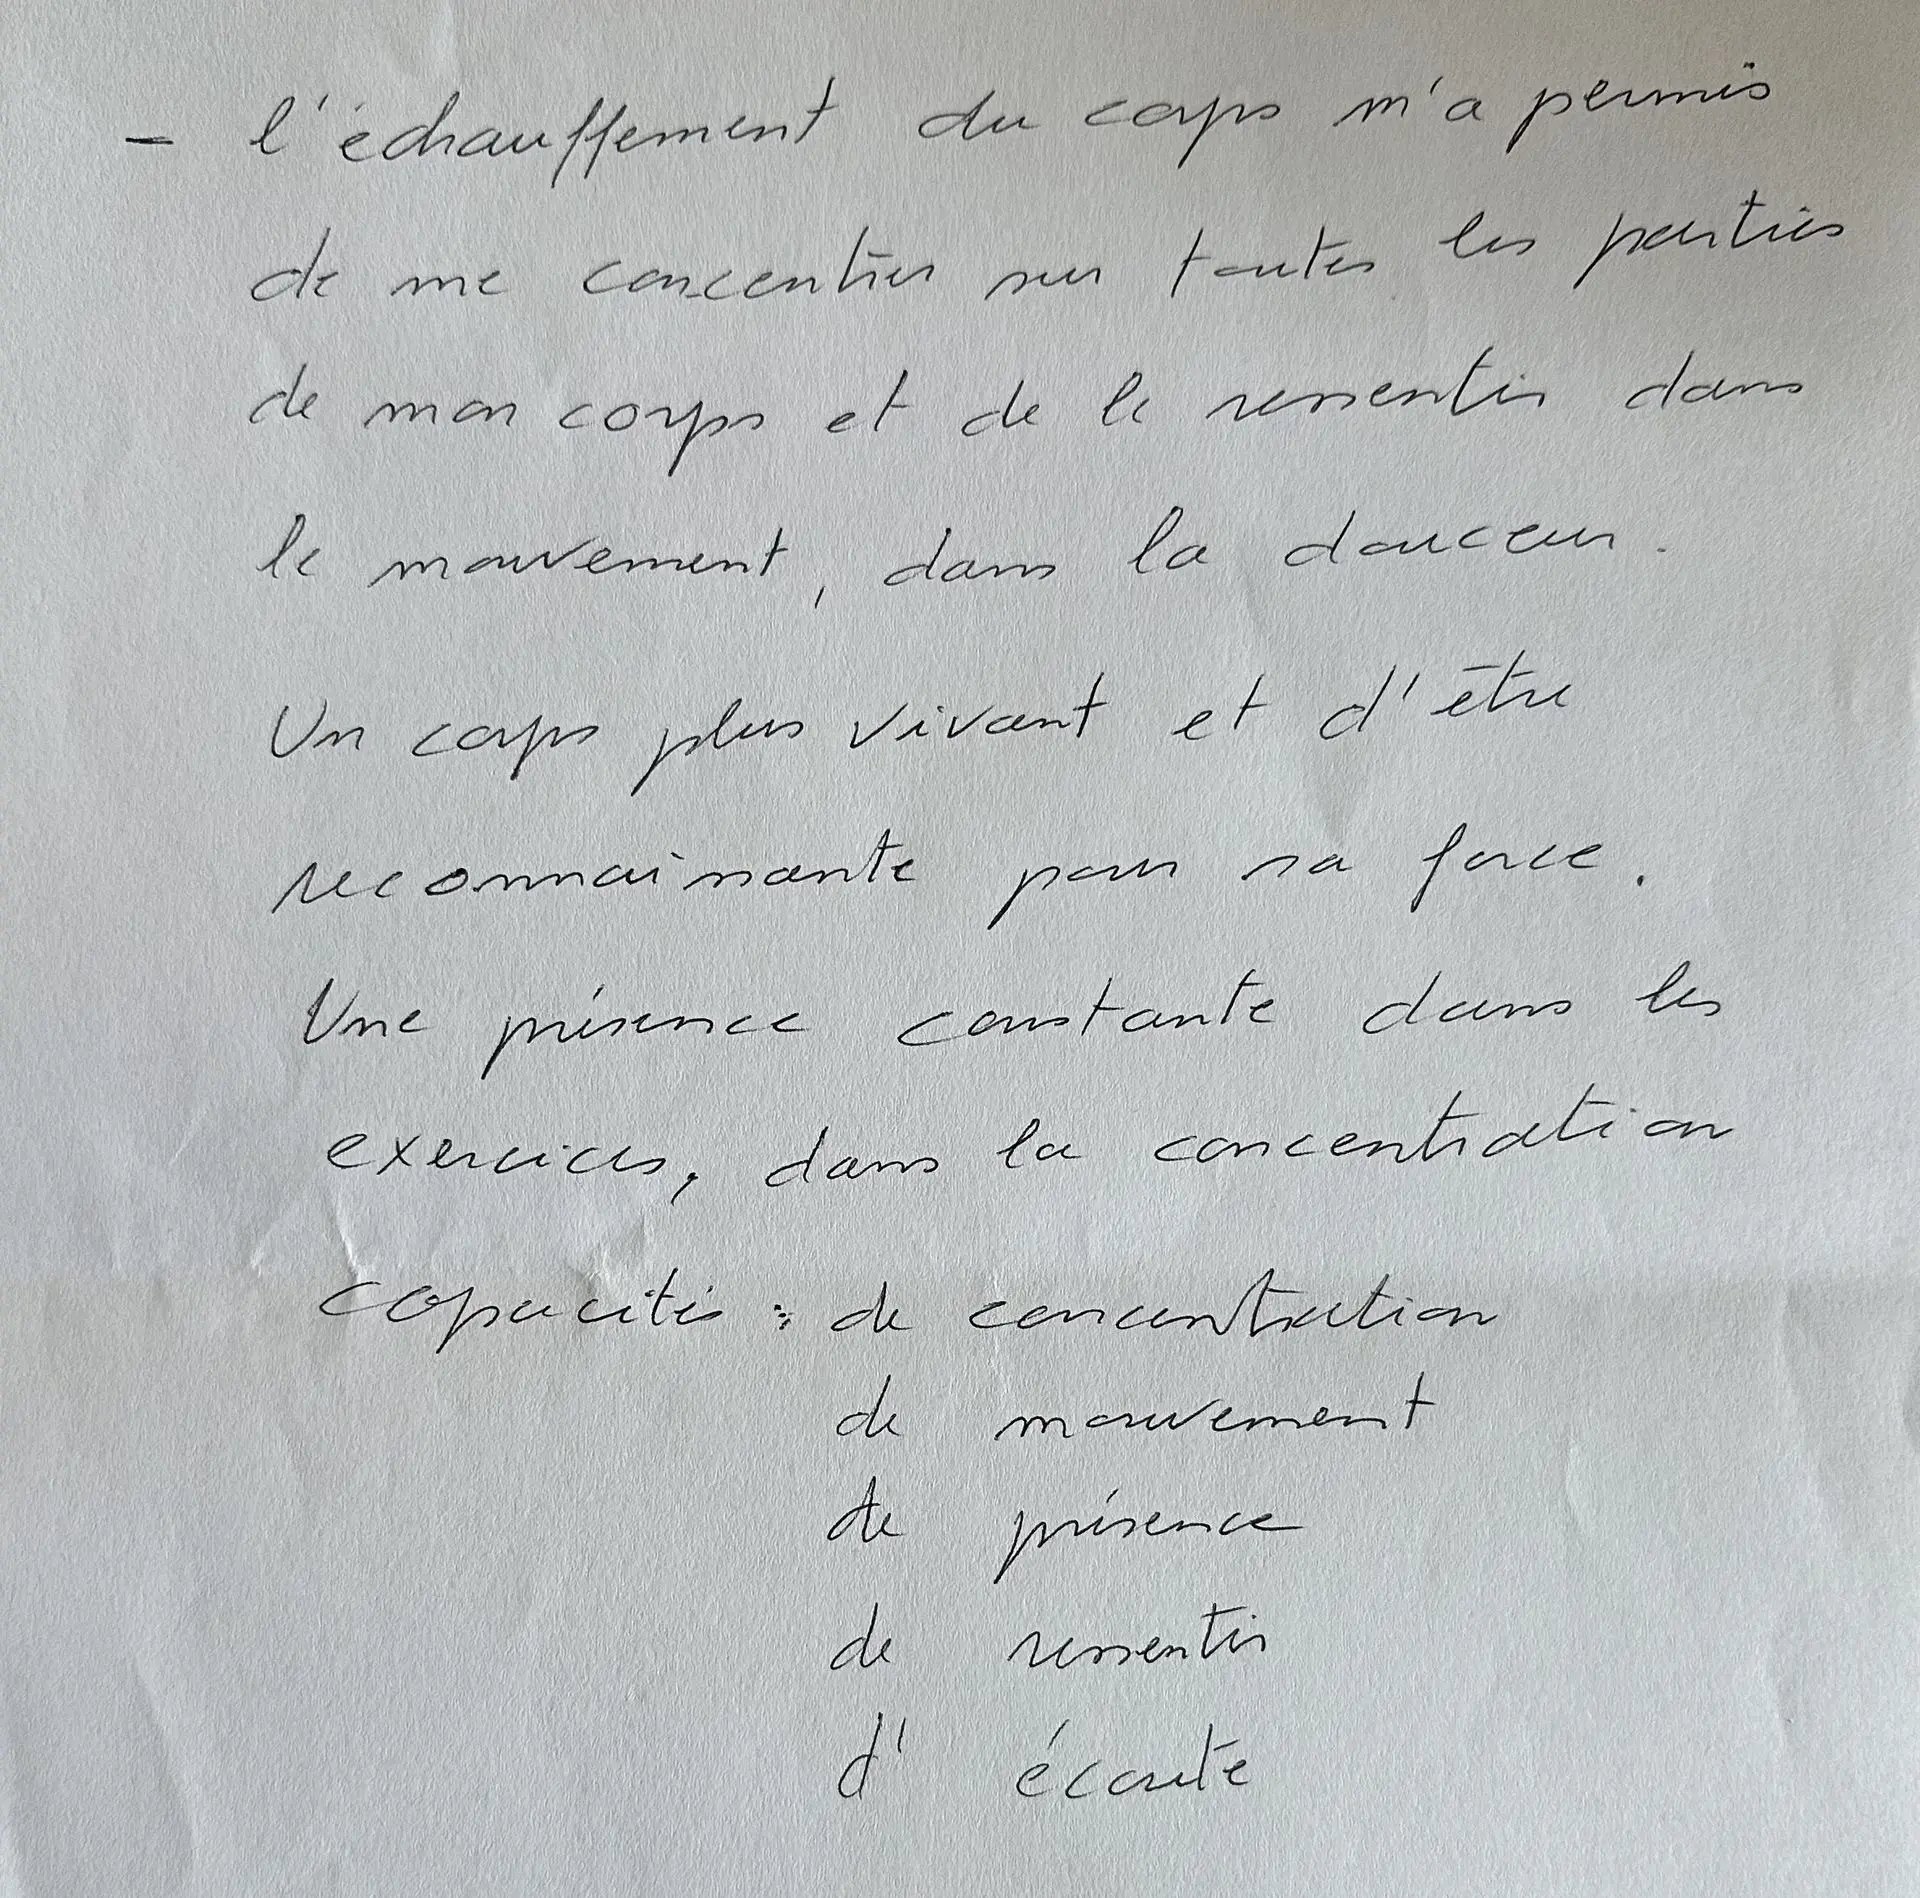 - l'échauffement du corps m'a permis
de me concentrer sur toutes les parties
de mon corps et de le ressentir dans
le mouvement, dans la douceur.
Un corps plus vivant et d'être
reconnaissante pour sa force.
Une présence constante dans les
exercices, dans la concentration
capacités : de concentration
de mouvement
de présence
de ressentir
d' écoute